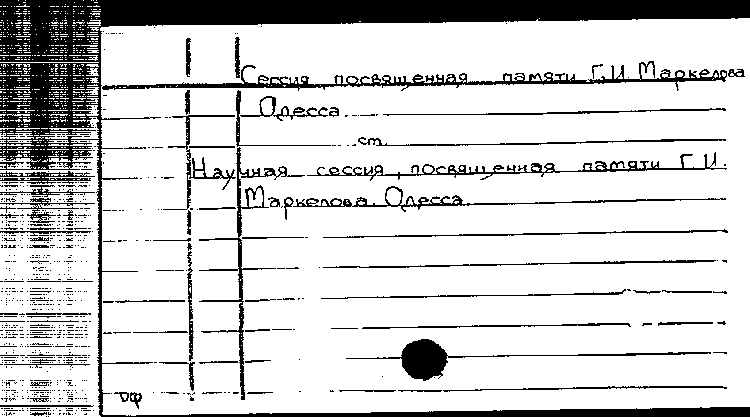 Сессия, посвященная памяти Г.И. Маркелова
Одесса.
ст.
Научная сессия, посвященная памяти Г.И.
Маркелова. Одесса.